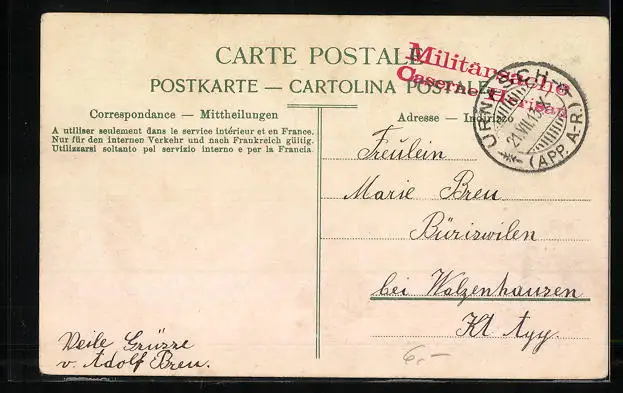 CARTE POSTALE
POSTKARTE — CARTOLINA POSTALE
Militärsache
Caserne Herisau
URNÄSCH
21.VII.13.
(APP. A-R.)
Correspondance — Mittheilungen
A utiliser seulement dans le service intérieur et en France.
Nur für den internen Verkehr und nach Frankreich gültig.
Utilizzarsi soltanto pel servizio interno e per la Francia.
Adresse — Indirizzo
Freulein
Marie Breu
Büriswilen
bei Walzenhausen
Kt Apg.
Veile Grüzze
v. Adolf Breu.
6.-